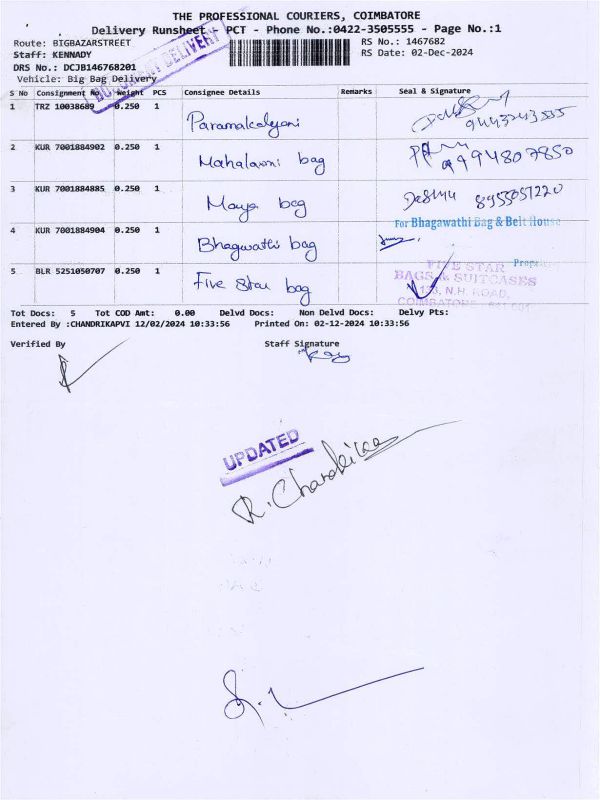 THE PROFESSIONAL COURIERS, COIMBATORE
Delivery Runsheet - PCT - Phone No.:0422-3505555 - Page No.:1
Route: BIGBAZARSTREET
RS No.: 1467682
Staff: KENNADY
RS Date: 02-Dec-2024
DRS No.: DCJB146768201
Vehicle: Big Bag Delivery
DELIVERY
S No Consignment No Weight PCS Consignee Details Remarks Seal & Signature
1 TRZ 10038689 0.250 1 Paramakalyani 9443243555
2 KUR 7001884902 0.250 1 Mahalaxmi bag 9994807850
3 KUR 7001884885 0.250 1 Maya bag 8955051220
For Bhagawathi Bag & Belt House
4 KUR 7001884904 0.250 1 Bhagwathi bag
5 BLR 5251050707 0.250 1 Five Star bag
FIVE STAR
BAGS & SUITCASES
N.H. ROAD,
COIMBATORE
Tot Docs: 5 Tot COD Amt: 0.00 Delvd Docs: Non Delvd Docs: Delvy Pts:
Entered By :CHANDRIKAPVI 12/02/2024 10:33:56 Printed On: 02-12-2024 10:33:56
Verified By Staff Signature
UPDATED
R. Chandrika